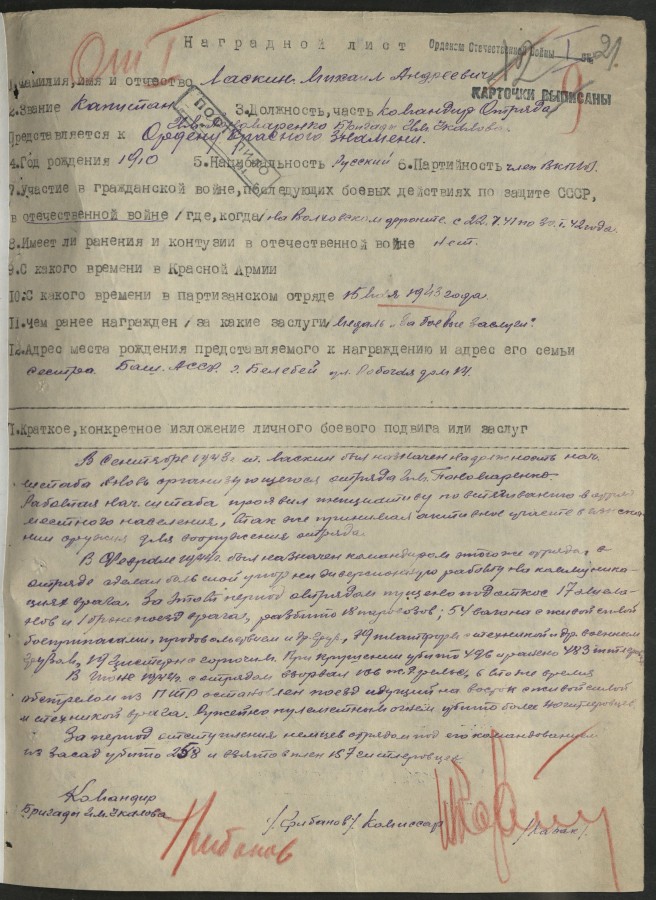 Наградной лист Орденом Отечественной Войны I ст. 21.
От I
1. Фамилия, имя и отчество Маскин Михаил Андреевич
КАРТОЧКИ ВЫПИСАНЫ
2. Звание Капитан 3. Должность, часть Командир Отряда
Им. Пономаренко Бригады Им. Чкалова
Представляется к Ордену Красного Знамени.
4. Год рождения 1910 5. Национальность Русский 6. Партийность член ВКП(б).
7. Участие в гражданской войне, последующих боевых действиях по защите СССР,
в отечественной войне /где, когда/ на Волховском фронте. с 22.7.41 по 20.1.42 года.
8. Имеет ли ранения и контузии в отечественной войне Нет.
9. С какого времени в Красной Армии
10. С какого времени в партизанском отряде 15 1943 года.
11. Чем ранее награжден / за какие заслуги/ медаль "За боевые заслуги".
12. Адрес места рождения представляемого к награждению и адрес его семьи
сестра Баш. АССР г. Белебей ул. Рабочая дом 14.
1. Краткое, конкретное изложение личного боевого подвига или заслуг
В Сентябре 1943г. т. Маскин был назначен на должность нач.
штаба вновь организующегося отряда Им. Пономаренко.
Работая нач. штаба проявил инициативу по втягиванию в отряд
местного населения, а так же принимал активное участие в
оружия для вооружения отряда.
В Феврале 1944г. был назначен командиром этого же отряда, в
отряде сделал большой упор на диверсионную работу на коммуника-
циях врага. За этот период отрядом пущено под откос 17 эшело-
нов и 1 бронепоезд врага, разбито 18 паровозов; 54 вагона с живой силой
боеприпасами, продовольствием и др. груз., платформы с техникой и др. военным
грузом, 19 цистерн с горючим. При крушении убито 496 и ранено 483 гитлер.
В Июне 1944г. с отрядом взорвал жд рельс, в то же время
обстрелом из ПТР остановлен поезд идущий на восток с живой силой
и техникой врага. Ружейно пулеметным огнем убито более гитлеровцев.
За период отступления немцев отрядом под его командованием
из засад убито 258 и взято в плен 157 гитлеровцев.
Командир
Бригады Им. Чкалова /Грибанов/ Комиссар
Грибанов